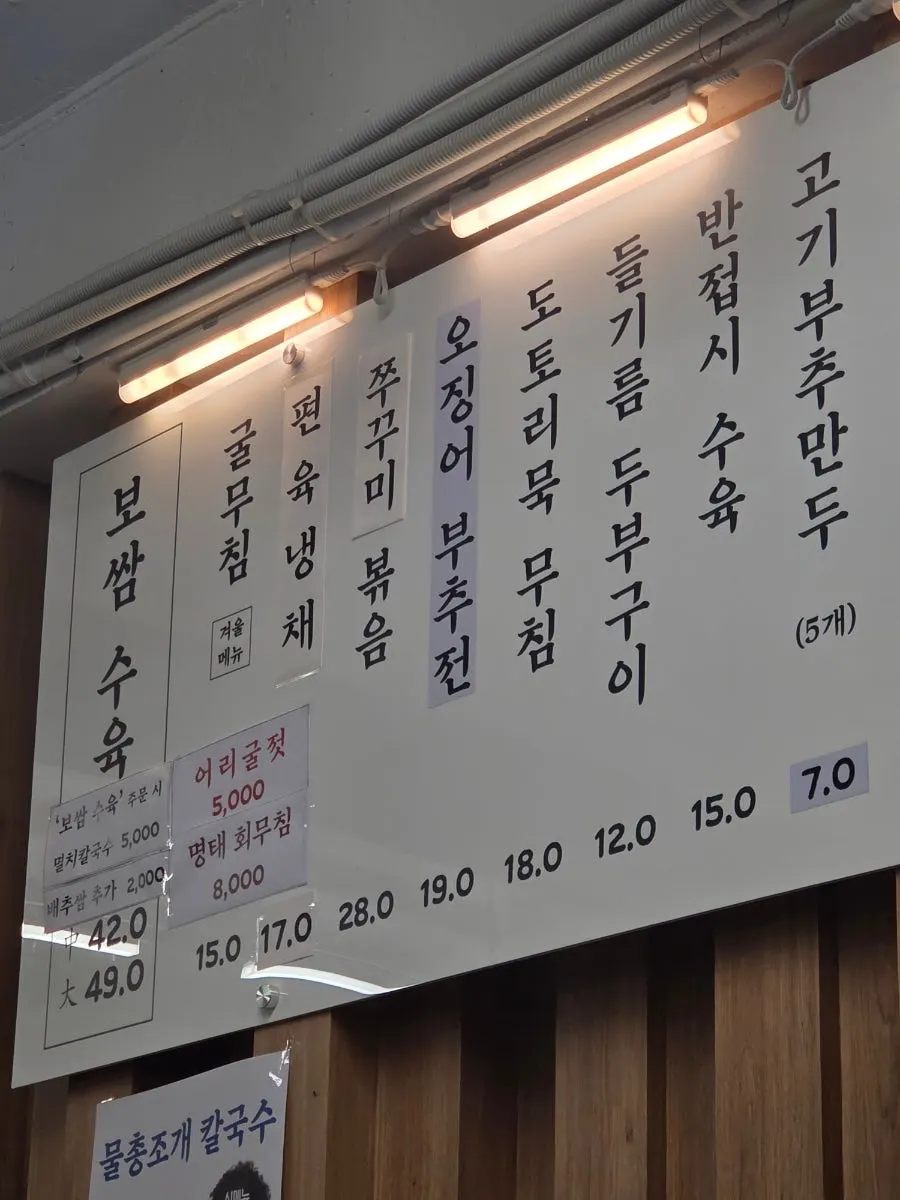 보쌈 수육
'보쌈 수육' 주문 시
멸치칼국수 5,000
배추쌈 추가 2,000
中 42.0
大 49.0
굴무침
겨울
메뉴
15.0
어리굴젓
5,000
명태 회무침
8,000
편육냉채
17.0
쭈꾸미 볶음
28.0
오징어 부추전
19.0
도토리묵 무침
18.0
들기름 두부구이
12.0
반접시 수육
15.0
고기부추만두
(5개)
7.0
물총조개 칼국수